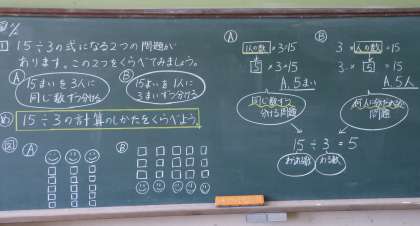 1 15÷3の式になる2つの問題が
あります。この2つをくらべてみましょう。
A 15まいを3人に
同じ数ずつ分ける
B 15まいを1人に
3まいずつ分ける
め 15÷3の計算のしかたをくらべよう。
図 A
B
A
1人の数×3=15
5×3=15
A.5まい
同じ数ずつ
分ける問題
B
3×人の数=15
3×5=15
A.5人
何人に分けられる
問題
15÷3=5
わられる数 わる数